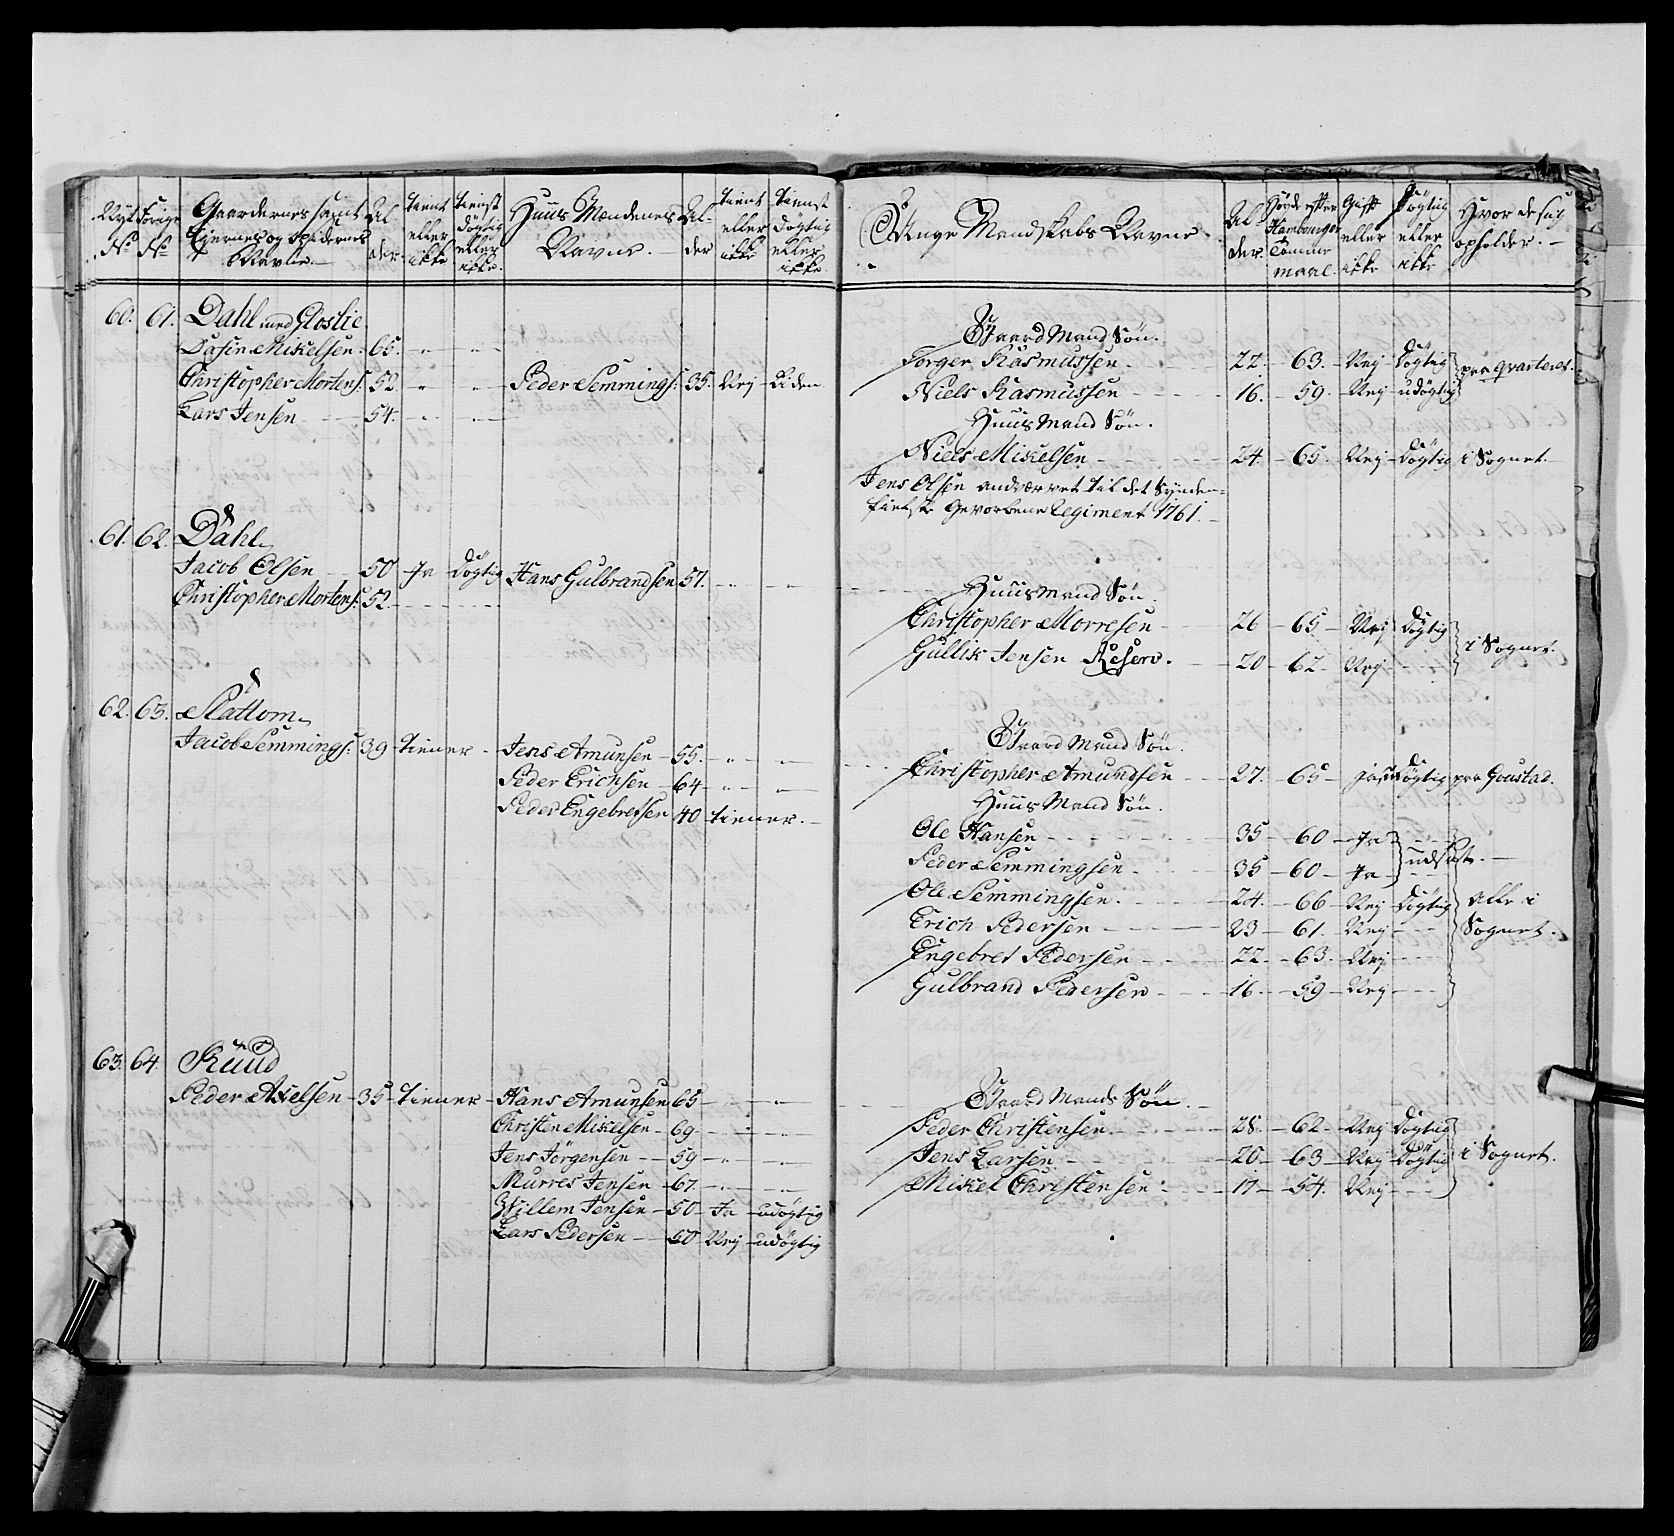 Nye No Forige No Gaardernes samt Ejernes og Opsidernes Navne. Al- der. tient eller ikke tienst døgtig eller ikke. Huus Mendenes Navne. Al- der tient eller ikke tienst døgtig eller ikke.
60. 61. Dahl med
Mikelsen 65.
Christopher Mortens: 52 Peder Semmings: 35. Nej Liden
Lars Jensen 54.
61. 62. Dahl
Jacob Olsen 50 Ja Døgtig Hans Gulbrandsen 57.
Christopher Mortens: 52.
62. 63. Slattom
Jacob Semmings: 39 tiener Jens Amunsen 55.
Peder Erichsen 64
Peder Engebretsen 40 tiener.
63. 64. Ruud
Peder Axelsen 35 tiener Hans Amunsen 65
Christen Mikelsen 69
Jens Jörgensen 59
Murres Jensen 67.
Willem Jensen 50 Ja udøgtig
Lars Pedersen 50 Nej udøgtig
Unge Mandskabs Navne Al- der. Høyde efter Hambourger Tomme maal. Gift eller ikke Døgtig eller ikke Hvor de sig opholder.
Gaard Mand Søn.
Torger Rasmussen 22. 63. Nej Døgtig
Niels Rasmussen 16. 59. Nej udøgtig
Huus Mand Søn.
Niels Mikelsen 24. 65. Nej Døgtig i Sognet.
Jens Olsen andværvet til det Synden-
fieldske Gevorbene Regiment 1761.
Huus Mand Søn.
Christopher Morresen 26 65 Nej Døgtig i Sognet.
Gullik Jensen Reserv. 20 62. Nej
Gaard Mand Søn.
Christopher Amundsen 27. 65 Døgtig paa Goustad.
Huus Mand Søn.
Ole Hansen 35 60 Ja
Peder Semmingsen 35 60 Ja udsat.
Ole Semmingsen 24. 66 Nej Døgtig alle i
Erich Pedersen 23 61. Nej Sognet.
Engebret Pedersen 22. 63. Nej
Gulbrand Pedersen 16. 59 Nej
Gaard Mands Søn.
Peder Christensen 28. 62 Nej Døgtig
Jens Larsen 20 63 Nej Døgtig i Sognet.
Mikel Christensen 17 54. Nej